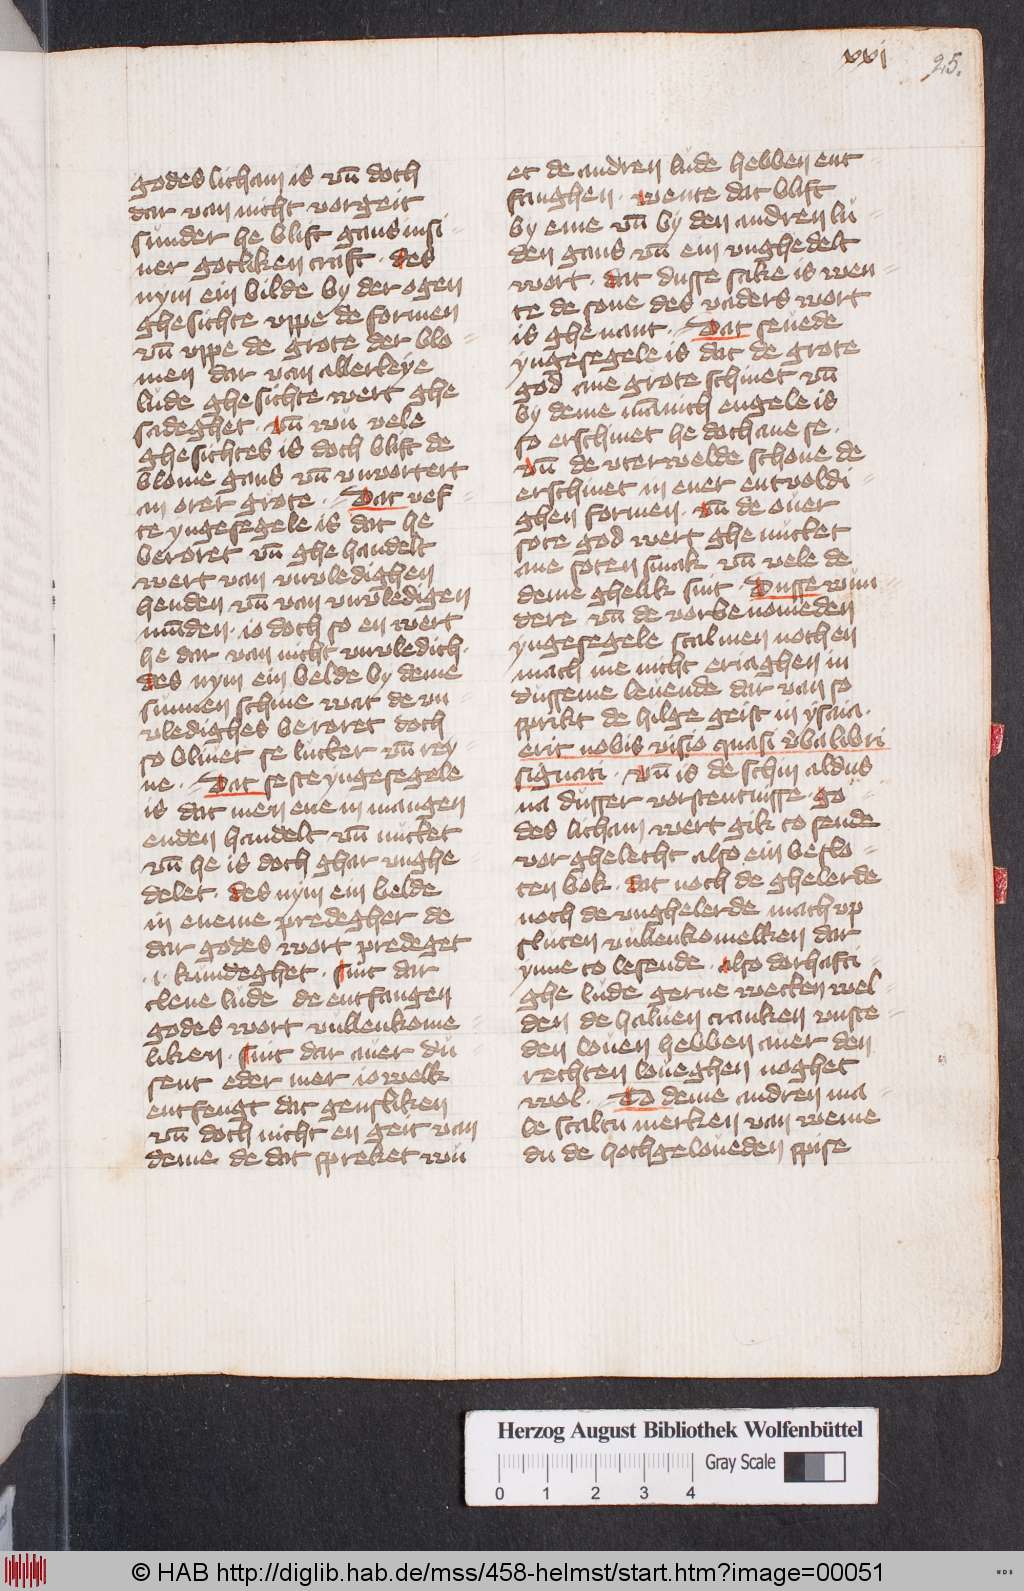 xxi 25.
godes licham is vn̄ doch
dar van nicht vorgeit
sunder he blift gans in si=
ner gotliken craft · des
nym ein bilde by der ogen
ghesichte vppe de formen
vn̄ vppe de grote der blo=
men dar van allerleye
lude ghesichte wert ghe
sadeghet · vn̄ wu vele
ghesichtes is doch blift de
blome gans vn̄ vnvortert
an orer grote · Dat vef=
te yngesegele is dat he
beroret vn̄ ghe handelt
wert van vnvledighen
henden vn̄ van vnvledigen
mūden · io doch so en wert
he dar van nicht vnvledich ·
des nym ein belde by deme
sunnen schine wat de vn
vledighes beroret doch
so bliuet se lutter vn̄ rey
ne · Dat seste yngesegele
is dat men ene in mangen
enden handelt vn̄ nuttet
vn̄ he is doch ghar vnghe=
delet · des nym ein belde
in eneme predegher de
dar godes wort predeget
·i· kundeghet · sint dar
clene lude de entfangen
godes wort vullenkome=
liken · sint dar auer du=
sent eder mer iowelk
entfengt dat genstliken
vn̄ doch nicht en geit van
deme de dat spreket wu
et de andren lude hebben ent=
fanghen · wente dat blift
by eme vn̄ by den andren lu=
den gans vn̄ ein vnghedelt
wort · dat dusse sake is wen=
te de sone des vaders wort
is ghenant · Dat seuede
yngesegele is dat de grote
god ane grote schinet vn̄
by deme mānich engele is
so erschinet he doch ane se ·
vn̄ de vterwelde schone de
erschinet in ener entvoldi=
ghen formen · vn̄ de ouer
sote god wert ghe nuttet
ane soten smak vn̄ vele de
deme ghelik sint · Dusse wun=
dere vn̄ de vorbenomeden
yngesegele scal men noch en
mach me nicht eriaghen in
dusseme leuende dar van so
sprikt de hilge geist in ysaia ·
erit nobis visio quasi v̄ba libri
signati · vn̄ is de schin aldus
na dusser vorstentnisse · go=
des licham wert gik to sende
vor ghelecht also ein beslo=
ten bok · dat noch de ghelerde
noch de vnghelerde mach vp
sluten vullenkomelken dar
ynne to lesende · also dorhafti=
ghe lude gerne wetten wel=
den de haluen cranken vnste=
den louen hebben auer den
rechten loueghen noghet
wol · To deme andren ma=
le scaltu merken van weme
du de hochgeloueden spise
Herzog August Bibliothek Wolfenbüttel
Gray Scale
0 1 2 3 4
© HAB http://diglib.hab.de/mss/458-helmst/start.htm?image=00051